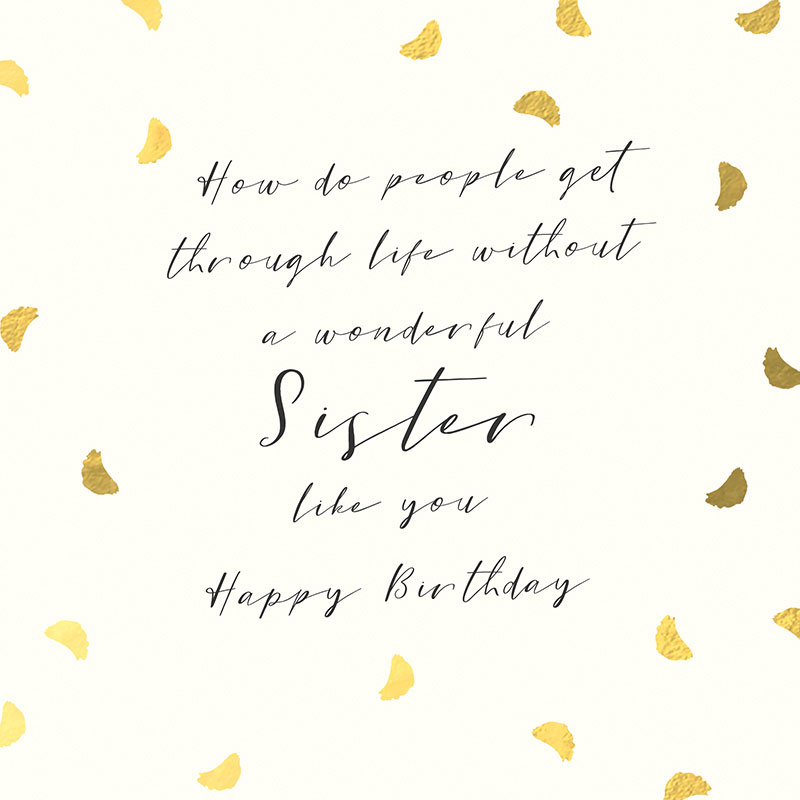 How do people get
through life without
a wonderful
Sister
like you
Happy Birthday